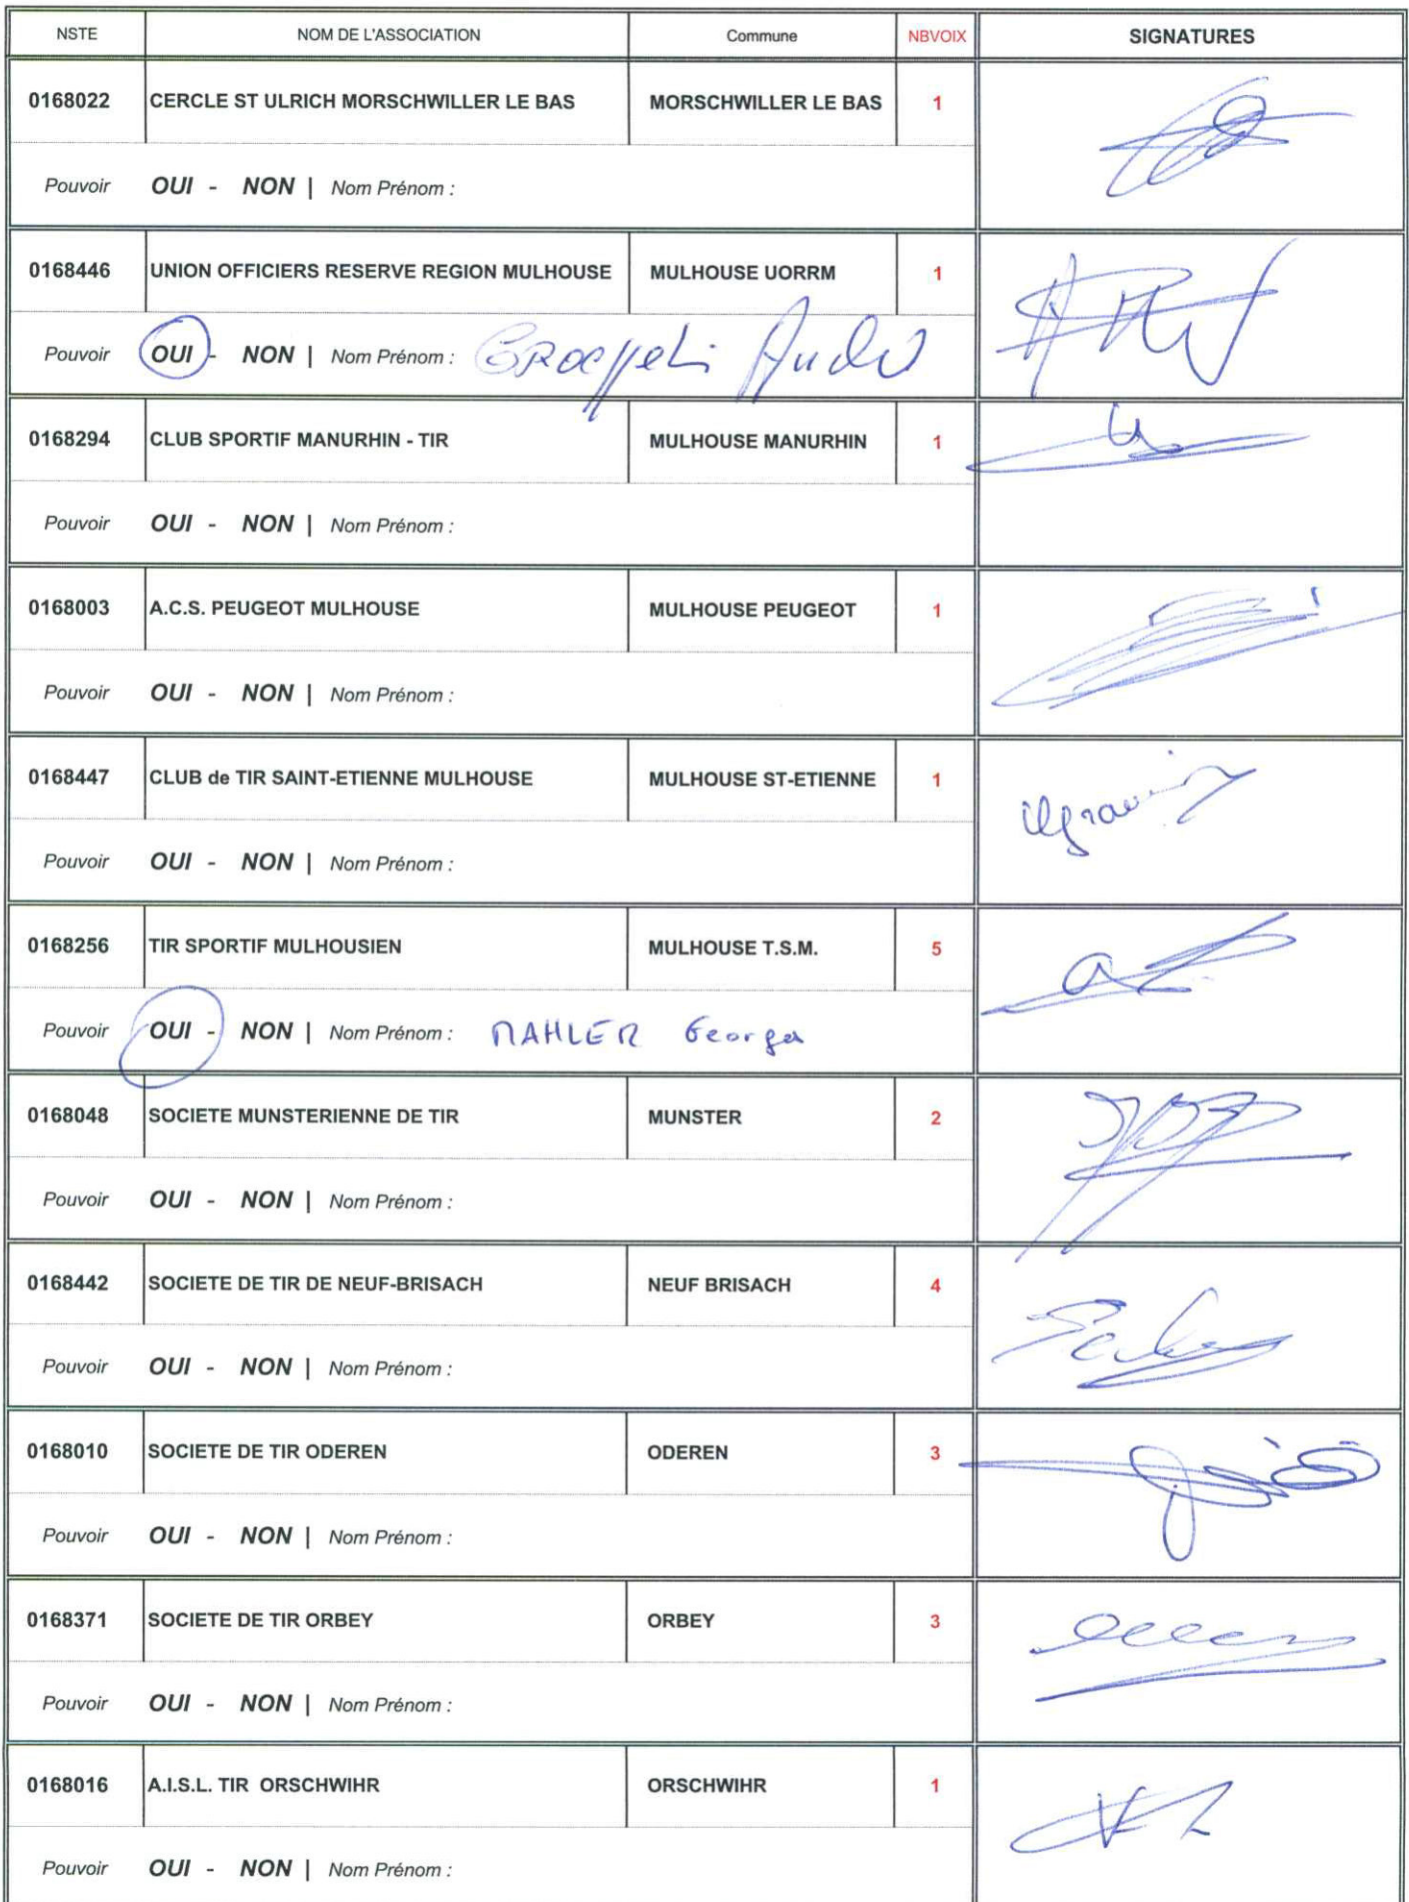 NSTE NOM DE L'ASSOCIATION Commune NBVOIX SIGNATURES
0168022 CERCLE ST ULRICH MORSCHWILLER LE BAS MORSCHWILLER LE BAS 1
Pouvoir OUI - NON | Nom Prénom :
0168446 UNION OFFICIERS RESERVE REGION MULHOUSE MULHOUSE UORRM 1
Pouvoir OUI - NON | Nom Prénom : André
0168294 CLUB SPORTIF MANURHIN - TIR MULHOUSE MANURHIN 1
Pouvoir OUI - NON | Nom Prénom :
0168003 A.C.S. PEUGEOT MULHOUSE MULHOUSE PEUGEOT 1
Pouvoir OUI - NON | Nom Prénom :
0168447 CLUB de TIR SAINT-ETIENNE MULHOUSE MULHOUSE ST-ETIENNE 1
Pouvoir OUI - NON | Nom Prénom :
0168256 TIR SPORTIF MULHOUSIEN MULHOUSE T.S.M. 5
Pouvoir OUI - NON | Nom Prénom : MAHLER Georges
0168048 SOCIETE MUNSTERIENNE DE TIR MUNSTER 2
Pouvoir OUI - NON | Nom Prénom :
0168442 SOCIETE DE TIR DE NEUF-BRISACH NEUF BRISACH 4
Pouvoir OUI - NON | Nom Prénom :
0168010 SOCIETE DE TIR ODEREN ODEREN 3
Pouvoir OUI - NON | Nom Prénom :
0168371 SOCIETE DE TIR ORBEY ORBEY 3
Pouvoir OUI - NON | Nom Prénom :
0168016 A.I.S.L. TIR ORSCHWIHR ORSCHWIHR 1
Pouvoir OUI - NON | Nom Prénom :